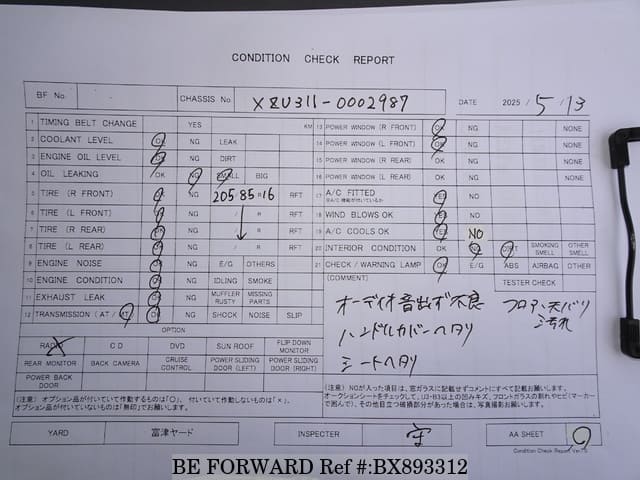 CONDITION CHECK REPORT
BF No. CHASSIS No XZU311-0002987 DATE 2025/5/13
1 TIMING BELT CHANGE YES KM
2 COOLANT LEVEL OK NG LEAK
3 ENGINE OIL LEVEL OK NG DIRT
4 OIL LEAKING OK NG SMALL BIG
5 TIRE (R FRONT) NG 205 85 R 16 RFT
6 TIRE (L FRONT) NG / R RFT
7 TIRE (R REAR) OK NG / R RFT
8 TIRE (L REAR) NG / R RFT
9 ENGINE NOISE OK NG E/G OTHERS
10 ENGINE CONDITION OK NG IDLING SMOKE
11 EXHAUST LEAK OK NG MUFFLER RUSTY MISSING PARTS
12 TRANSMISSION (AT / MT) OK NG SHOCK NOISE SLIP
OPTION
RADIO CD DVD SUN ROOF FLIP DOWN MONITOR
REAR MONITOR BACK CAMERA CRUISE CONTROL POWER SLIDING DOOR (LEFT) POWER SLIDING DOOR (RIGHT)
POWER BACK DOOR
(注意) オプション品が付いていて作動するものは「○」、付いていて作動しないものは「×」、
オプション品が付いていないものは「無印」でお願いします。
13 POWER WINDOW (R FRONT) OK NG NONE
14 POWER WINDOW (L FRONT) OK NG NONE
15 POWER WINDOW (R REAR) OK NG NONE
16 POWER WINDOW (L REAR) OK NG NONE
17 A/C FITTED YES NO
18 WIND BLOWS OK YES NO
19 A/C COOLS OK YES NO
20 INTERIOR CONDITION OK NG DIRT SMOKING SMELL OTHER SMELL
21 CHECK/WARNING LAMP OK E/G ABS AIRBAG OTHER
(COMMENT) TESTER CHECK
オーディオ音出ず不良
フロアー天バリ
汚れ
ハンドルカバーヘタリ
シートヘタリ
(注意) NGが入った項目は、窓ガラスに記載せずコメントにすべて記載お願いします。
オークションシートをチェックして、U3・B3以上の凹みキズ、フロントガラスの割れやヒビ(マーカー
で囲んで)、その他目立つ破損部分があった場合は、写真撮影お願いします。
YARD 富津ヤード INSPECTER 守 AA SHEET ○
Condition Check Report Ver.7.0
BE FORWARD Ref #:BX893312